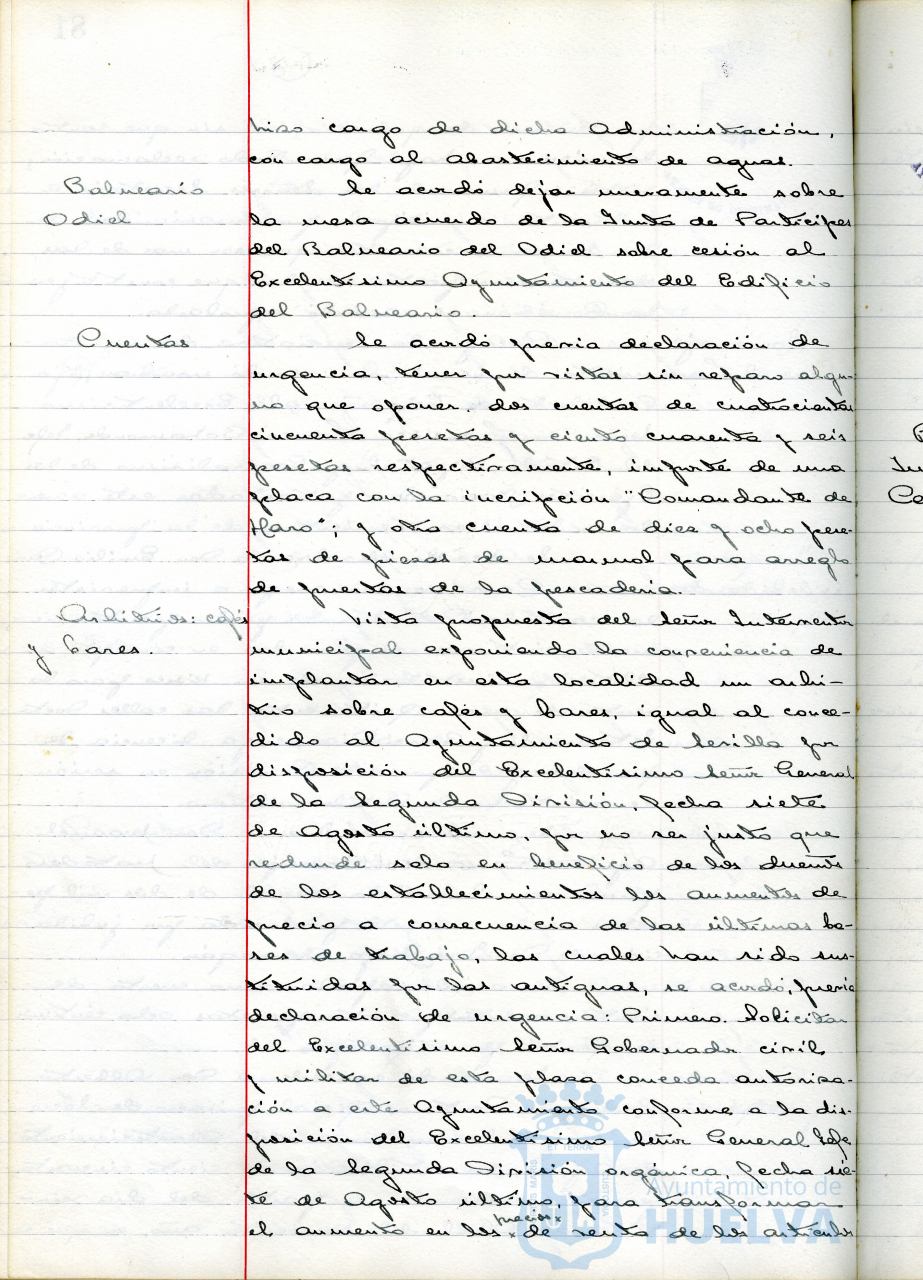 hizo cargo de dicha Administración,
con cargo al abastecimiento de aguas.
Balneario
Odiel
Se acordó dejar nuevamente sobre
la mesa acuerdo de la Junta de Partícipes
del Balneario del Odiel sobre cesión al
Excelentísimo Ayuntamiento del Edificio
del Balneario.
Cuentas
Se acordó previa declaración de
urgencia, tener por vistas sin reparo algu-
no que oponer, dos cuentas de cuatrocientas
cincuenta pesetas y ciento cuarenta y seis
pesetas respectivamente, importe de una
placa con la incripción "Comandante de
Haro"; y otra cuenta de diez y ocho pese-
tas de piezas de marmol para arreglo
de puertas de la pescaderia.
Arbitrios: cafés
y bares.
Vista propuesta del Señor Interventor
municipal exponiendo la conveniencia de
implantar en esta localidad un arbi-
trio sobre cafés y bares, igual al conce-
dido al Ayuntamiento de Sevilla por
disposición del Excelentísimo Señor General
de la Segunda División, fecha siete
de Agosto último, por no ser justo que
redunde solo en beneficio de los dueños
de los establecimientos los aumentos de
precio a consecuencia de las últimas ba-
ses de trabajo, las cuales han sido sus-
tituidas por las antiguas, se acordó, previa
declaración de urgencia: Primero. Solicitar
del Excelentísimo Señor Gobernador civil
y militar de esta plaza conceda autoriza-
ción a este Ayuntamiento conforme a la dis-
posición del Excelentísimo Señor General Jefe
de la Segunda División orgánica, fecha sie-
te de Agosto último, para transformar
el aumento en los precios de venta de los artículos
Ayuntamiento de
HUELVA